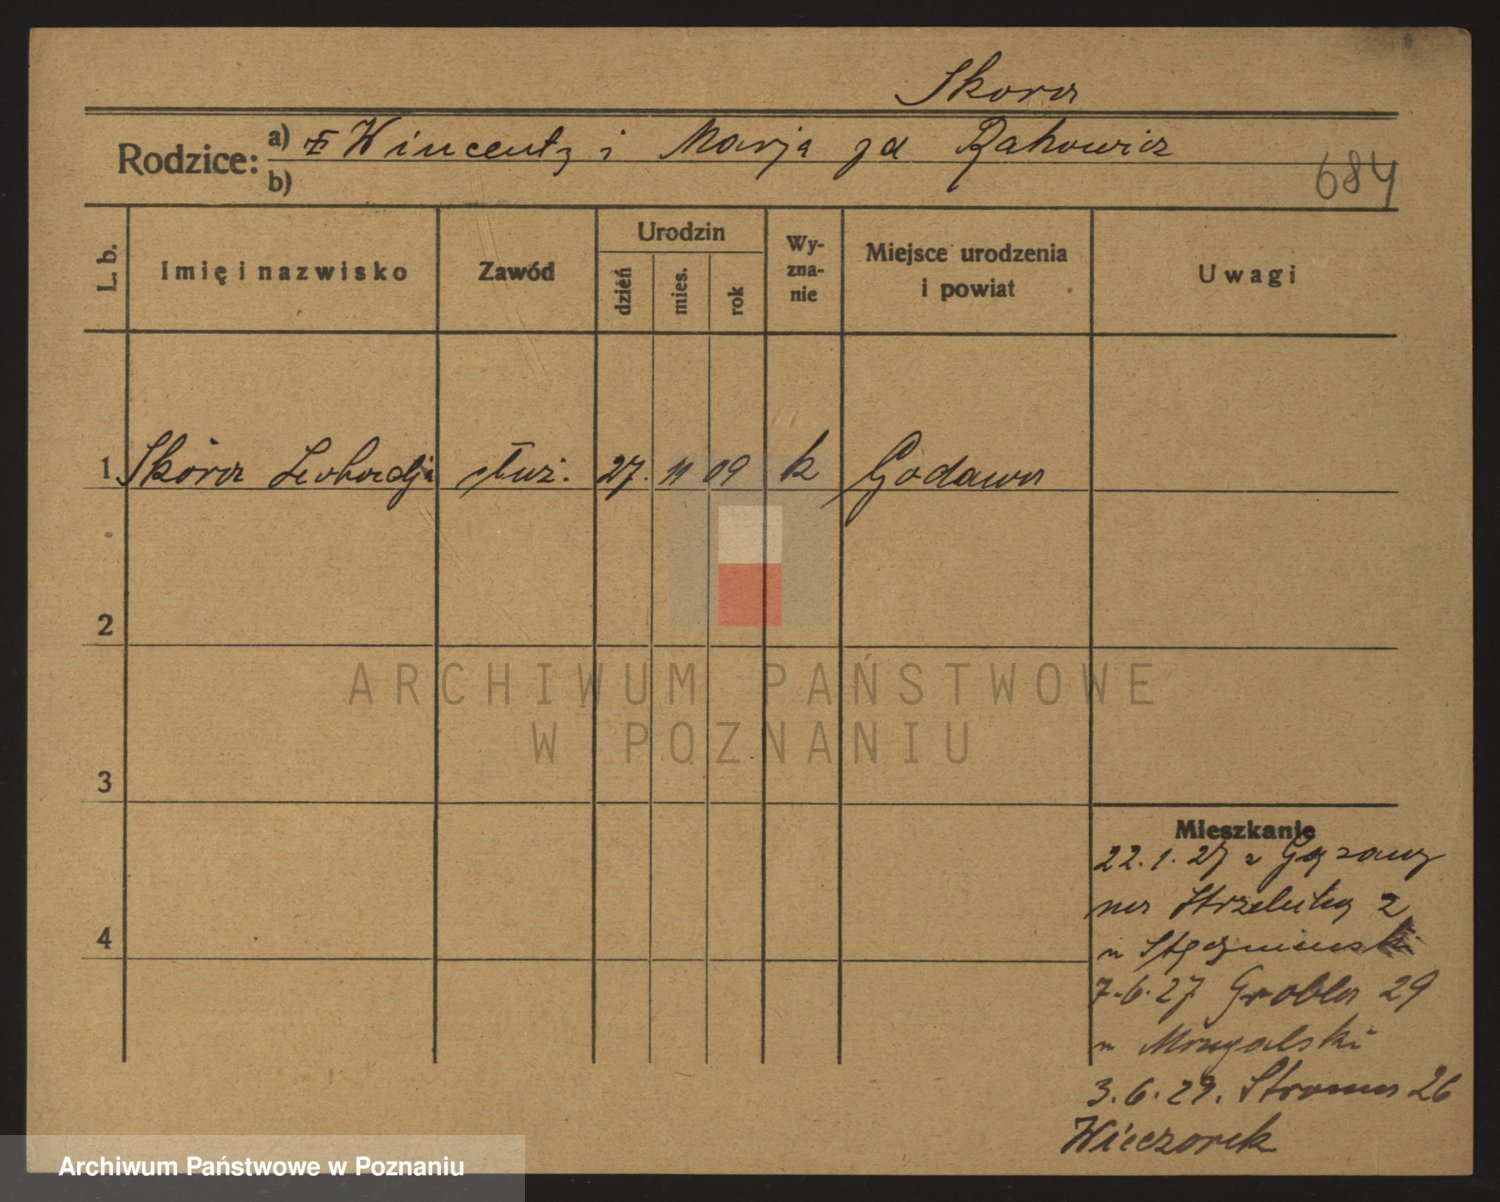 Skora
Rodzice: a) Wincenty i Marja zd Rakowicz
b)
684
L. b. Imię i nazwisko Zawód Urodzin dzień mies. rok Wyznanie Miejsce urodzenia i powiat Uwagi
1 Skóra Leokadja służ. 27. 11 09 k Godawa
2
3
4
Mieszkanie
22.1.27 z Gązawy
na Strzelecką 2
u
7.6.27 Grobla 29
u
3.6.29. Stroma 26
Wieczorek
ARCHIWUM PAŃSTWOWE
W POZNANIU
Archiwum Państwowe w Poznaniu